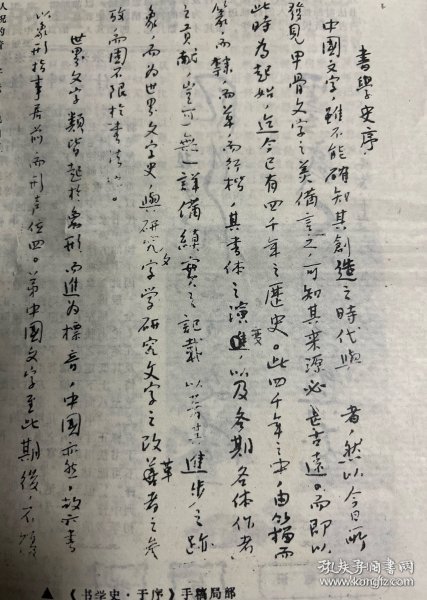 書學史序
中國文字，雖不能確知其創造之時代與　者，然以今日所
發見甲骨文字之美備言之，可知其来源必甚古遠。而即以
此時為起始，迄今已有四千年之歷史。此四千年之中，由篆而
籀，而隸，而草，而行楷，其書体之演進變，以及各期各体作者
之貢献，豈可無一詳備績實之記載，以考其進步之跡
象，而為世界文字史，與研究文字學研究文字之改革者之参
攷，而固不限於書法也。
世界文字類皆起於象形而進為標音，中國亦然。故六書
以象形指事居前，而形声位四。第中國文字至此期後，不
▲《书学史·于序》手稿局部
孔夫子旧书网